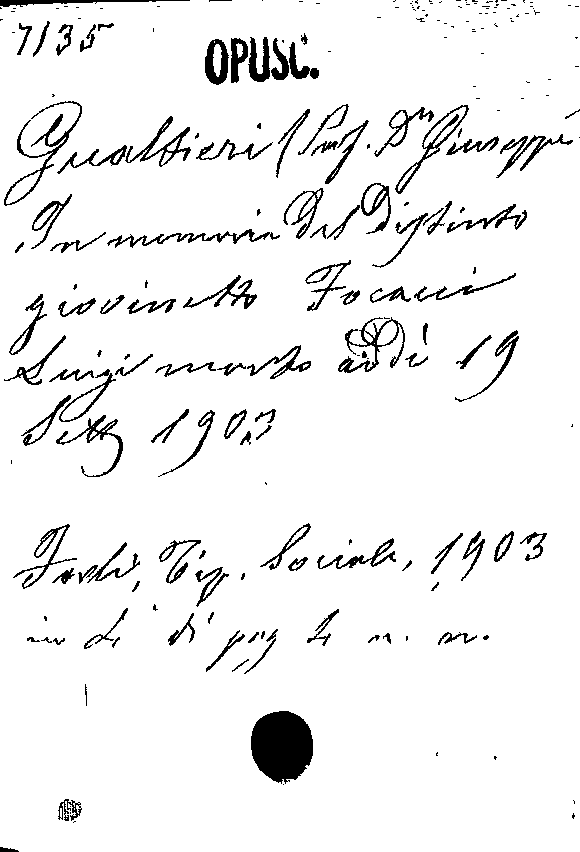 7135
OPUSC.
Gualtieri (Prof. Dn Giuseppe
In memoria del distinto
giovinetto Focacci
Luigi morto addì 19
Sett 1903
Forlì, Tip. Sociale, 1903
in 4° di pag 4 n. n.